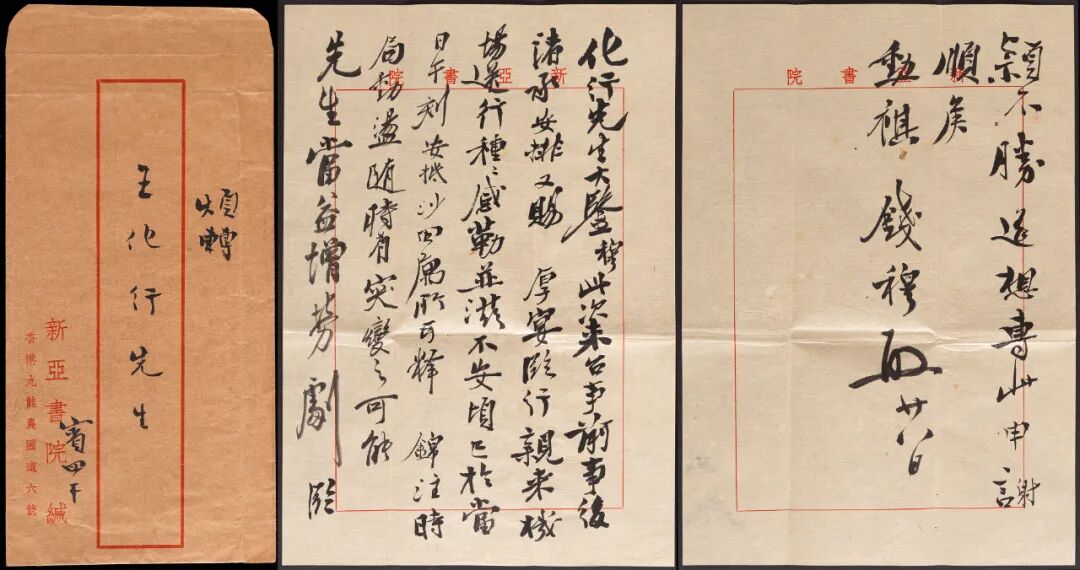 煩轉
王化行先生
新亞書院緘
賓四
香港九龍農圃道六號
新亞書院
化行先生大鑒穆此次來台事前事後
諸承安排又賜 厚宴臨行親來機
場送行種々感勒並深不安頃已於當
日午刻安抵沙田寓所可釋 錦注時
局動盪隨時有突變之可能
先生當益增勞劇臨
新亞書院
穎不勝遙想專此申謝
順矦
勳祺 錢穆 啟 廿八日